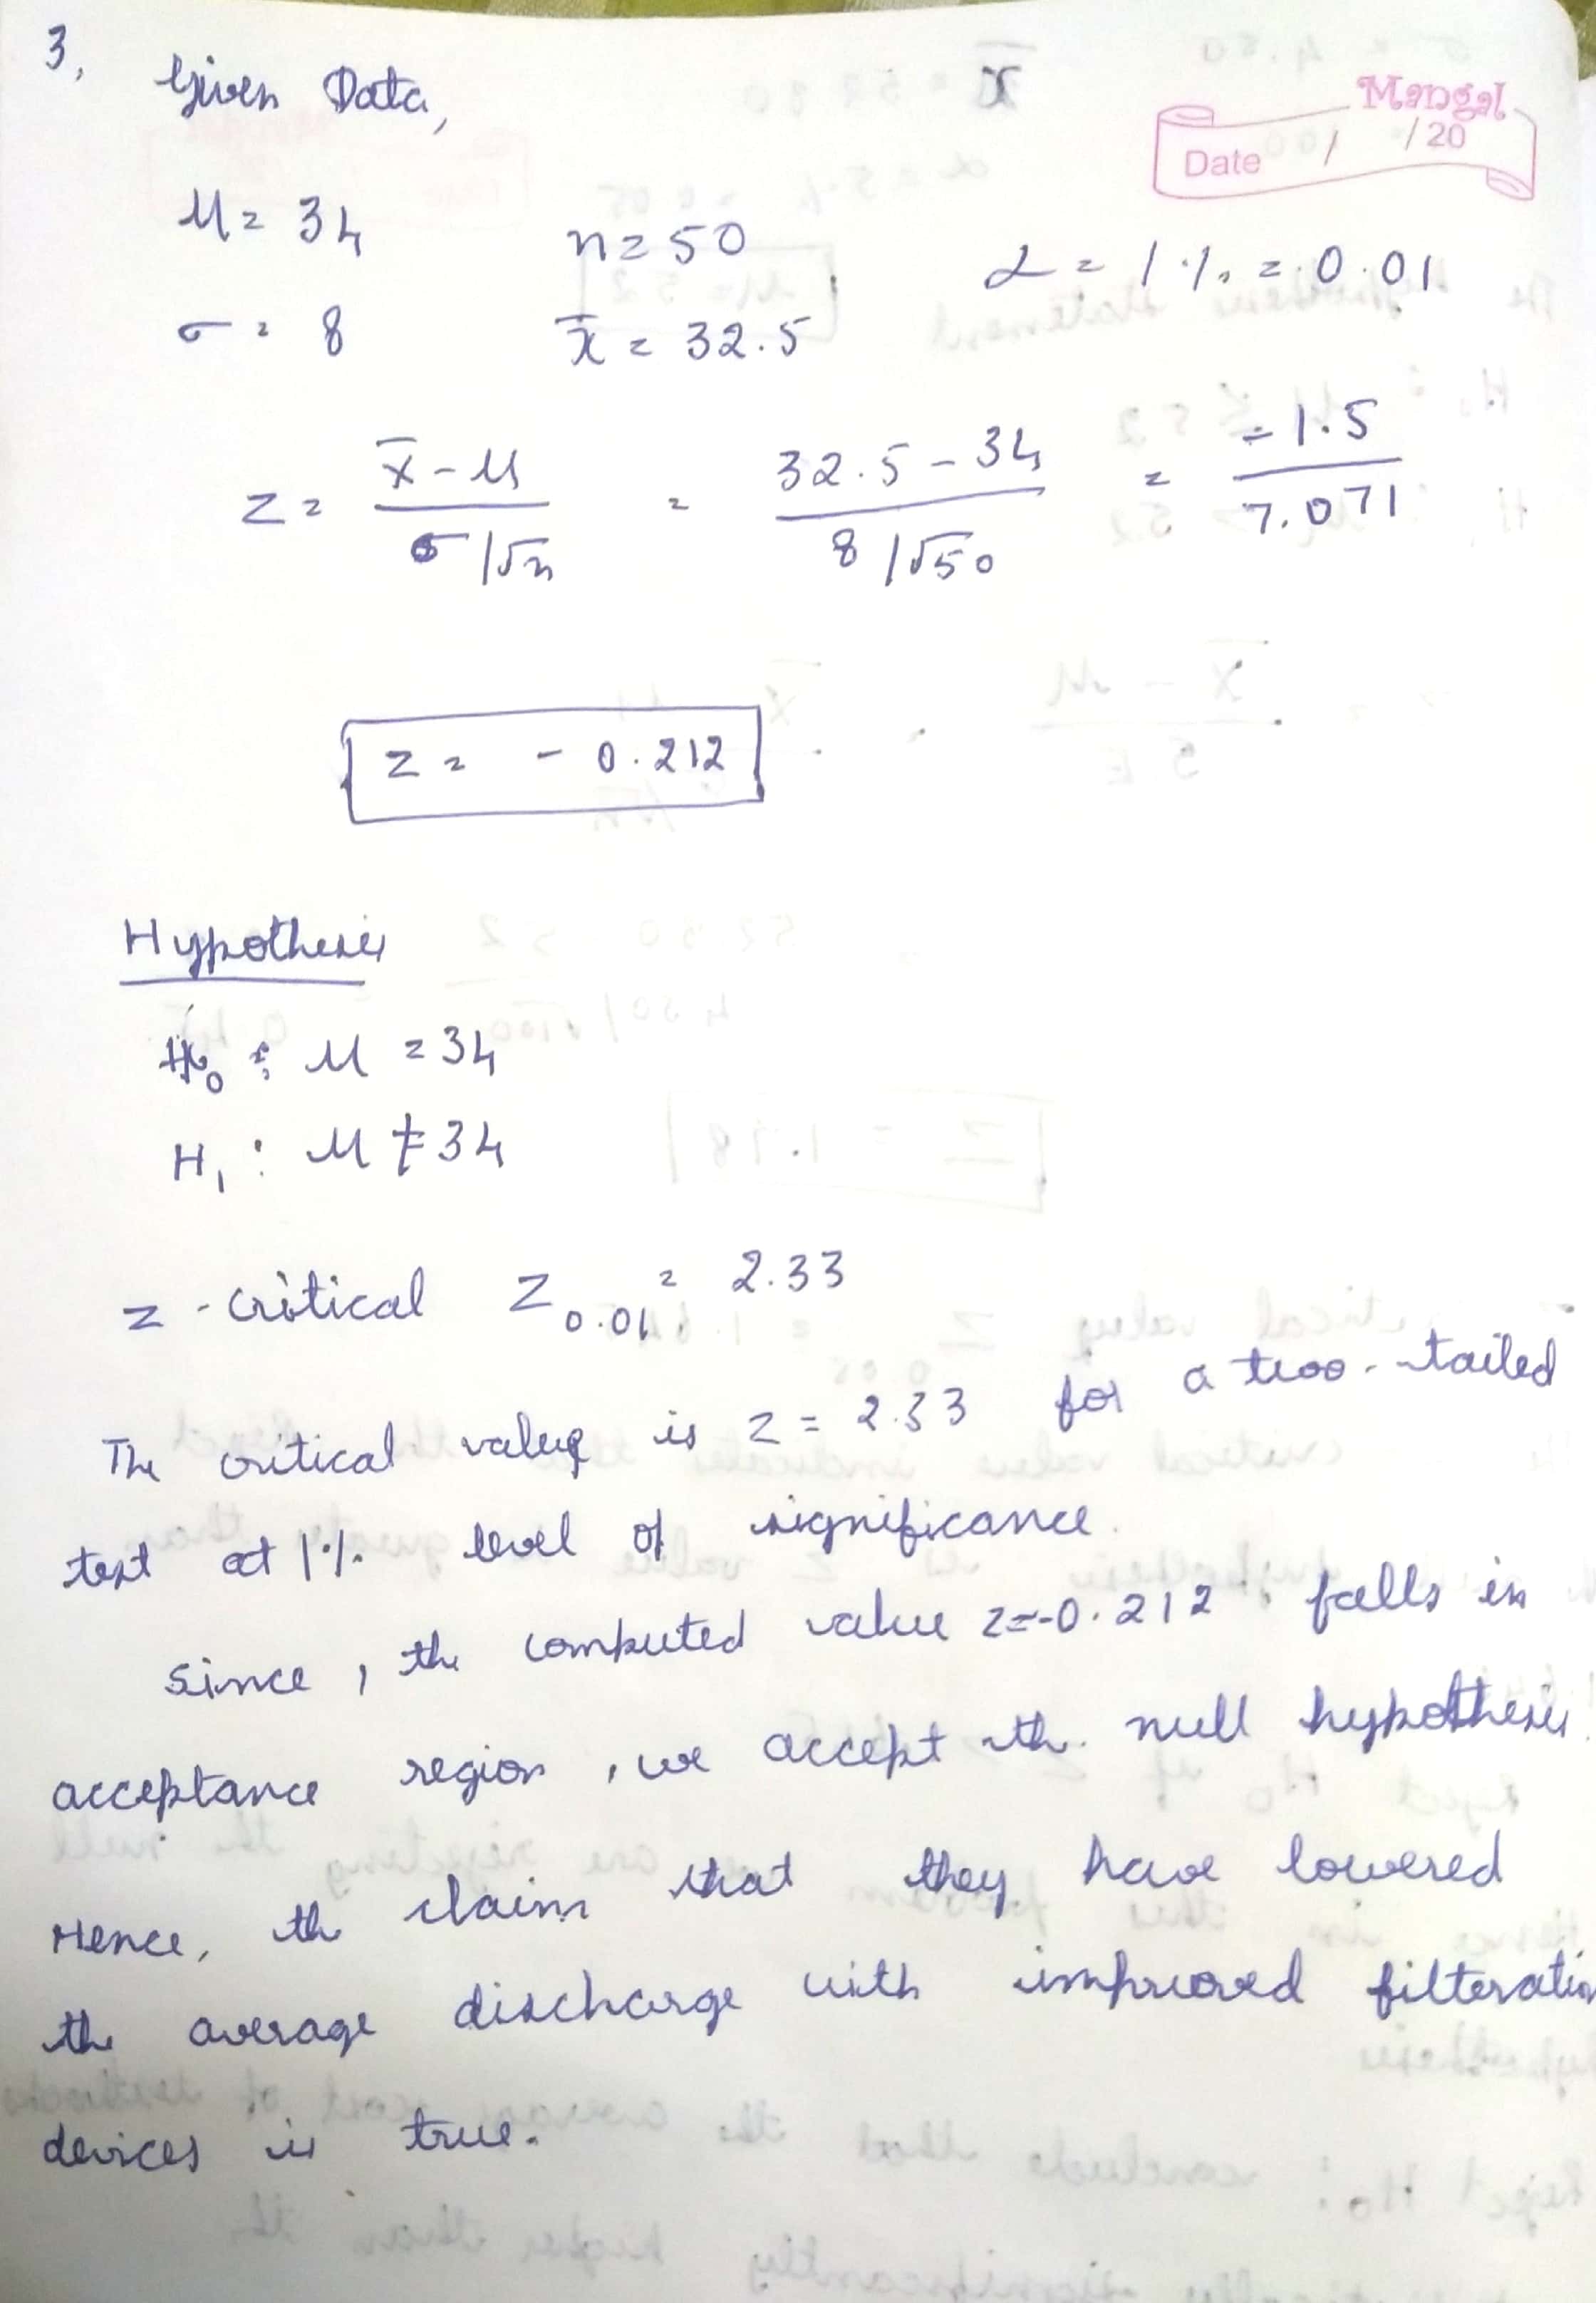 3,
Given Data,
Mangal
Date / /20
μ = 34 n = 50 α = 1% = 0.01
σ = 8 x̄ = 32.5
z = (x̄ - μ) / (σ/√n) = (32.5 - 34) / (8/√50) = -1.5 / 7.071
z = - 0.212
Hypothesis
H₀ : μ = 34
H₁ : μ ≠ 34
z - critical z 0.01 = 2.33
The critical value is z = 2.33 for a two-tailed
test at 1% level of significance.
Since, the computed value z=-0.212 falls in
acceptance region, we accept the null hypothesis.
Hence, the claim that they have lowered
the average discharge with improved filteration
devices is true.